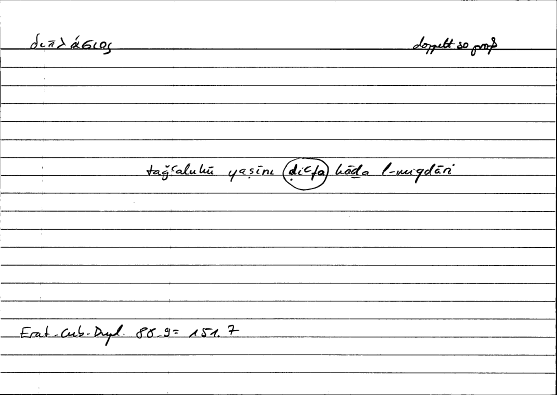 διπλάσιος doppelt so groß
taǧʿaluhū yaṣīru ḍiʿfa hāḏa l-miqdāri
Erat.-Cub.-Dupl. 88.9 = 151.7